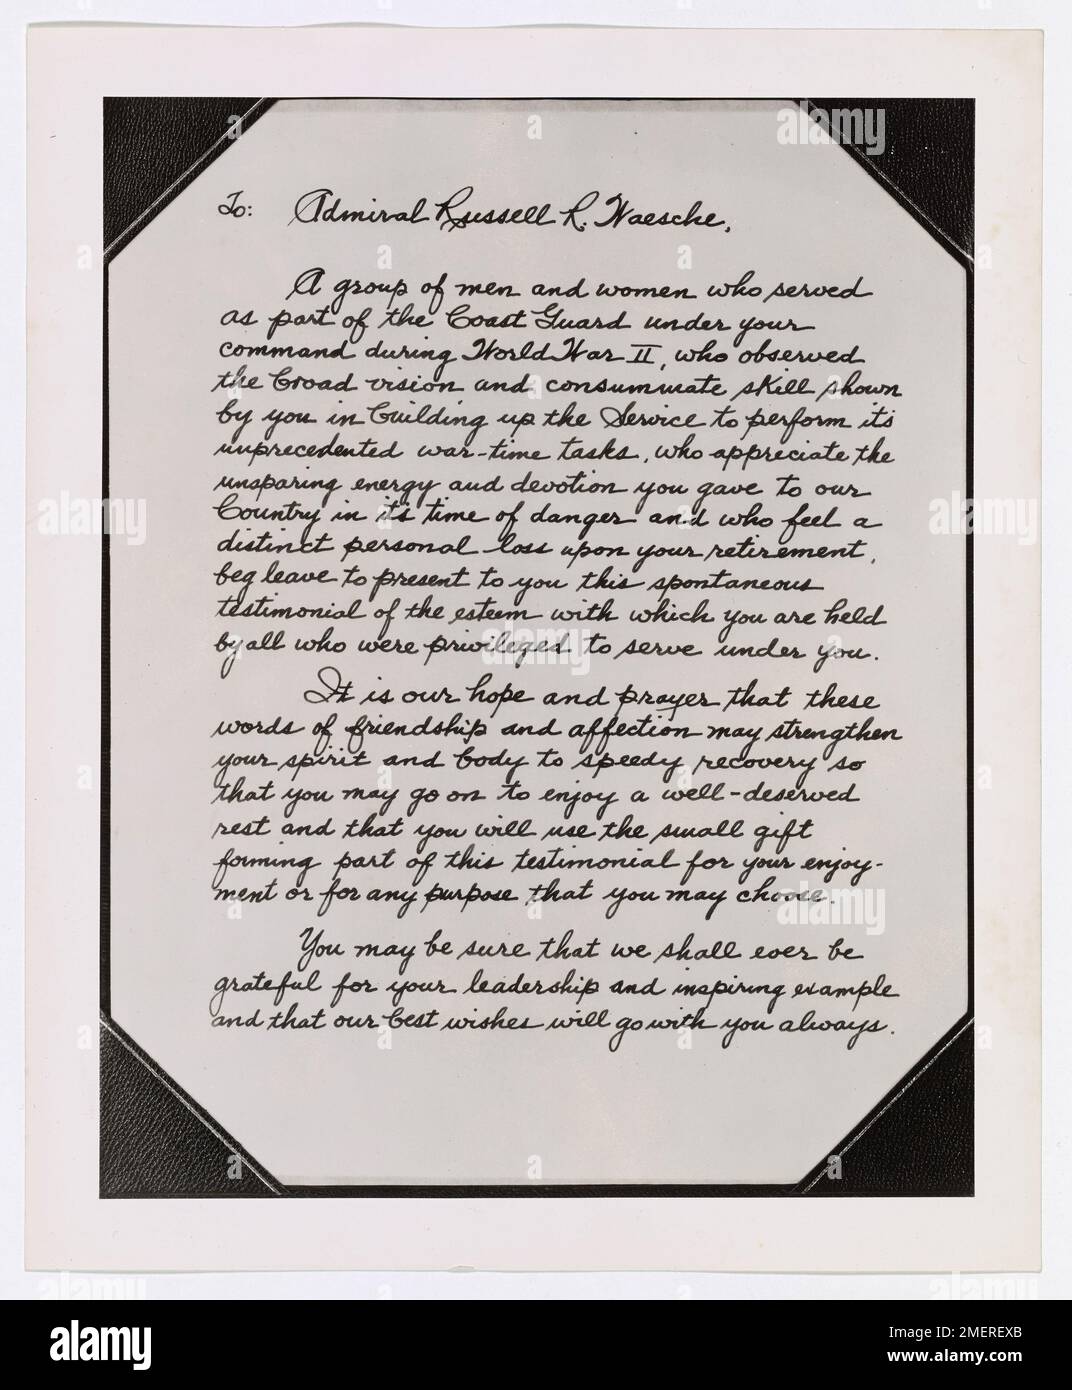 To: Admiral Russell R. Waesche,
A group of men and women who served
as part of the Coast Guard under your
command during World War II, who observed
the broad vision and consummate skill shown
by you in building up the Service to perform its
unprecedented war-time tasks, who appreciate the
unsparing energy and devotion you gave to our
Country in it's time of danger and who feel a
distinct personal loss upon your retirement,
beg leave to present to you this spontaneous
testimonial of the esteem with which you are held
by all who were privileged to serve under you.
It is our hope and prayer that these
words of friendship and affection may strengthen
your spirit and body to speedy recovery so
that you may go on to enjoy a well-deserved
rest and that you will use the small gift
forming part of this testimonial for your enjoy-
ment or for any purpose that you may choose.
You may be sure that we shall ever be
grateful for your leadership and inspiring example
and that our best wishes will go with you always.
alamy
Image ID: 2MEREXB
www.alamy.com